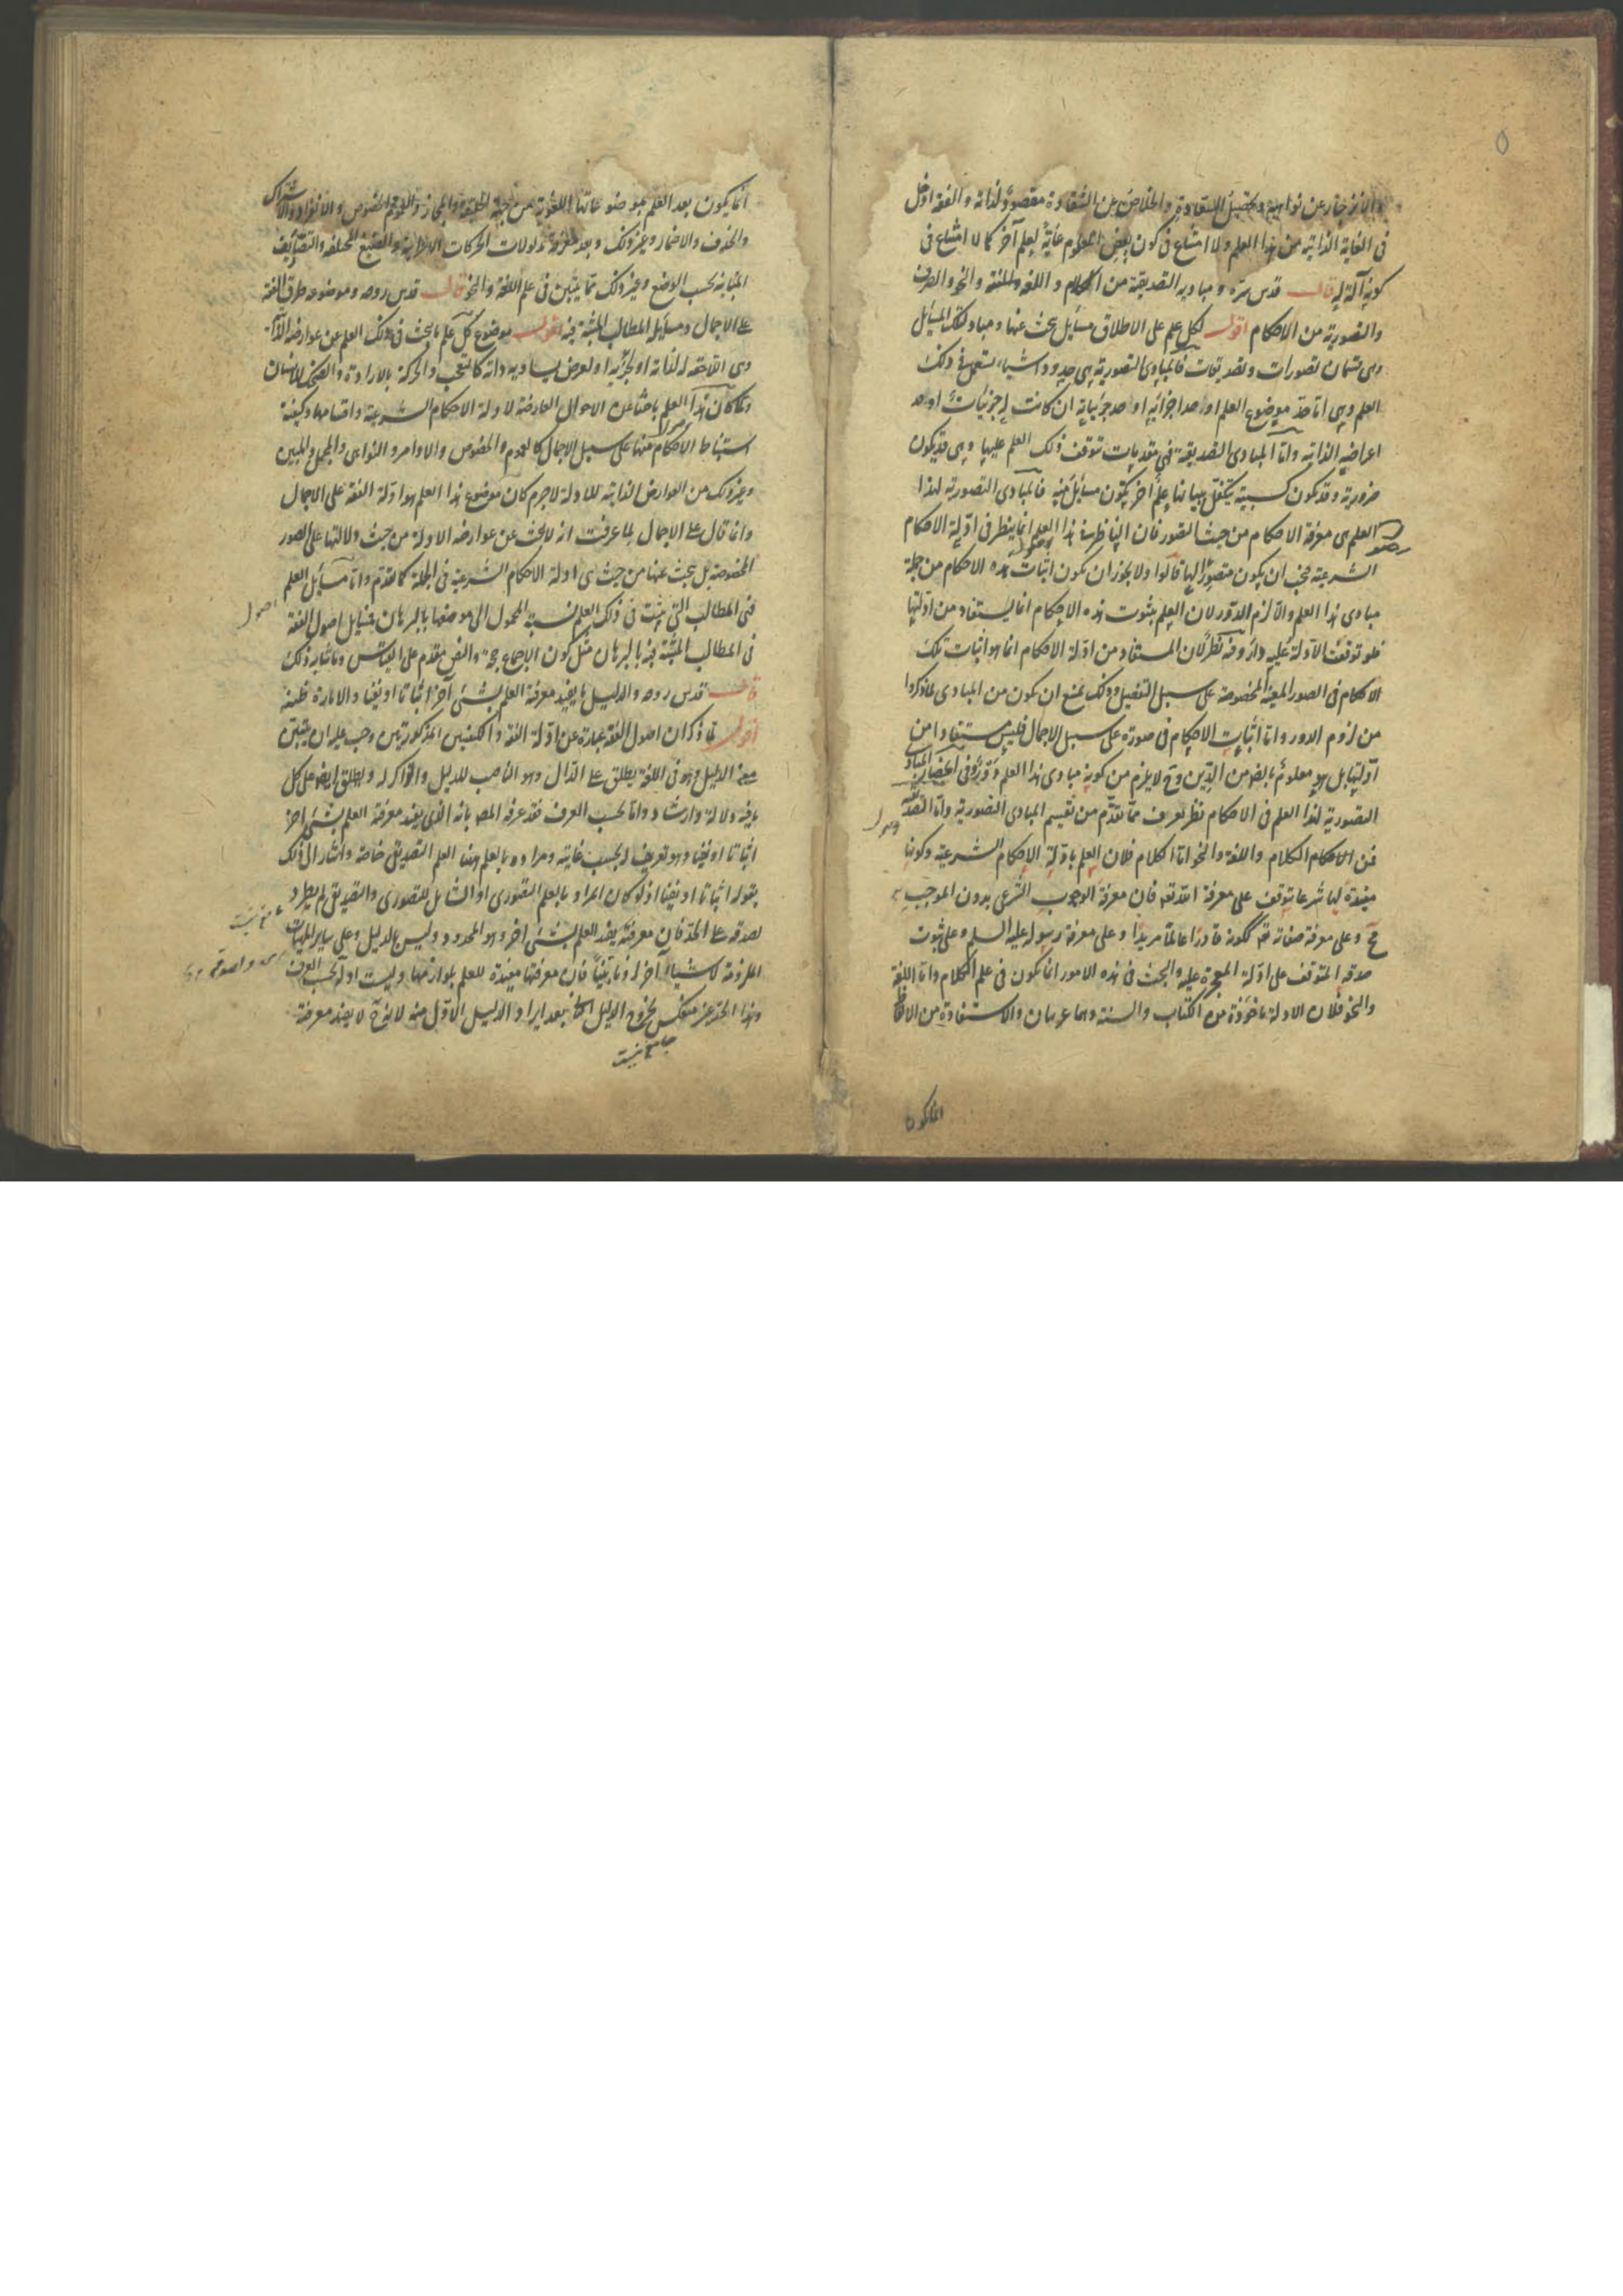 والانزجار عن نواهيه وتحصيل السعادة والخلاص عن الشقاوة مقصودة لذاته والفقه ادخل
فى الغاية الذاتية من هذا العلم ولا امتناع فى كون بعض العلوم غاية لعلم آخر كما لا امتناع فى
كونه آلة له قال قدس سره ومباديه التصديقية من الكلام واللغة والنحو والتصورية
والتصورية من الاحكام اقول لكل علم على الاطلاق مسائل يبحث عنها ومباد لتلك المسائل
وهى قسمان تصورات وتصديقات فالمبادى التصورية هى حدود اشياء تستعمل فى ذلك
العلم وهى اما حد موضوع العلم او حد اجزائه او حد جزئياته ان كانت له جزئيات او حد
اعراضه الذاتية واما المبادى التصديقية فهى مقدمات تتوقف ذلك العلم عليها وهى قد يكون
ضرورية وقد يكون كسبية يتكفل ببيانها علم آخر يكون مسائل فيه فالمبادى التصورية لهذا
العلم هى معرفة الاحكام من حيث التصور فان الناظر فى هذا العلم انما ينظر فى ادلة الاحكام
الشرعية فيجب ان يكون متصورا لها قالوا ولا يجوز ان يكون اثبات هذه الاحكام من جملة
مبادى هذا العلم والا لزم الدور لان العلم بثبوت هذه الاحكام انما يستفاد من ادلتها
فلو توقفت الادلة عليه دار وفيه نظر لان المستفاد من ادلة الاحكام انما هو اثبات تلك
الاحكام فى الصور المعينة المخصوصة على سبيل التفصيل وذلك يمنع ان يكون من المبادى لما ذكروا
من لزوم الدور واما اثبات الاحكام فى صورة على سبيل الاجمال فليس مستفادا من
ادلتها بل هو معلوم بالضرورة من الدين وح لا يلزم من كونه مبادى هذا العلم دور وفى انحصار المبادى
التصورية لهذا العلم فى الاحكام نظر يعرف مما تقدم من تقسيم المبادى التصورية واما التصديقية
فمن الكلام واللغة والنحو اما الكلام فلان العلم بادلة الاحكام الشرعية وكونها
مفيدة لها شرعا يتوقف على معرفة الله تعه فان معرفة الوجوب الشرعى بدون الموجب
مح وعلى معرفة صفاته تعه ككونه قادرا عالما مريدا وعلى معرفة رسوله عليه السلم وعلى ثبوت
صدقه المتوقف على ادلة المعجزة عليه والبحث فى هذه الامور انما يكون فى علم الكلام واما اللغة
والنحو فلان الادلة ماخوذة من الكتاب والسنة وهما عربيان والاستفادة من الالفاظ
انما يكون
انما يكون بعد العلم بموضوعاتها اللغوية من جهة الحقيقة والمجاز والعموم والخصوص والانفراد والاشتراك
والحذف والاضمار وغير ذلك وبعد معرفة مدلولات الحركات الاعرابية والصيغ المختلفة والتصاريف
المتباينة بحسب الوضع وغير ذلك مما يتبين فى علم اللغة والنحو قال قدس روحه وموضوعه طرق الفقه
على الاجمال ومسايله المطالب المثبتة فيه اقول موضوع كل علم ما يبحث فى ذلك العلم عن عوارضه الذاتية
وهى اللاحقة له لذاته او لجزئه او لعرض يساويه ذاته كالتعجب والحركة بالارادة والضحك للانسان
ولما كان هذا العلم باحثا عن الاحوال العارضة لادلة الاحكام الشرعية واقسامها وكيفية
استنباط الاحكام منها على سبيل الاجمال كالعموم والخصوص والاوامر والنواهى والمجمل والمبين
وغير ذلك من العوارض الذاتية للادلة لا جرم كان موضوع هذا العلم هو ادلة الفقه على الاجمال
وانما قال على الاجمال لما عرفت انه لا يبحث عن عوارضه الادلة من حيث دلالتها على الصور
المخصوصة بل يبحث عنها من حيث هى ادلة الاحكام الشرعية فى الجملة كما تقدم واما مسايل العلم
فهى المطالب التى يثبت فى ذلك العلم نسبة المحمول الى موضوعها بالبرهان فمسايل اصول الفقه
هى المطالب المثبتة فيه بالبرهان مثل كون الاجماع حجة والنص مقدم على القياس وما شابه ذلك
قال قدس روحه والدليل ما يفيد معرفة العلم بشئ آخر اثباتا او نفيا والامارة ظنية
اقول لما ذكر ان اصول الفقه عبارة عن ادلة الفقه والكيفيتين المذكورتين وجب عليه ان يبين
معنى الدليل وهو فى اللغة يطلق على الدال وهو الناصب للدليل والذاكر له ويطلق ايضا على كل
ما فيه دلالة وارشاد واما بحسب العرف فقد عرفه المص بانه الذى يفيد معرفة العلم بشئ آخر
اثباتا او نفيا وهو تعريف له بحسب غايته ومراده بالعلم ههنا العلم التصديقى خاصة واشار الى ذلك
بقوله اثباتا او نفيا اذ لو كان المراد بالعلم التصورى او الشامل للتصورى والتصديقى لم يطرد
لصدقه على الحد فان معرفته يفيد العلم بشئ آخر وهو المحدود وليس بالدليل وعلى ساير الماهيات
الملزومة لاشياء آخر لزوما بينا فان معرفتها مفيدة للعلم بلوازمها وليست ادلة بحسب العرف
وهذا الحد غير منعكس لخروج الدليل الثانى بعد ايراد الدليل الاول منه لانه ح لا يفيد معرفة
جامع نيست
اصول
مانع نيست